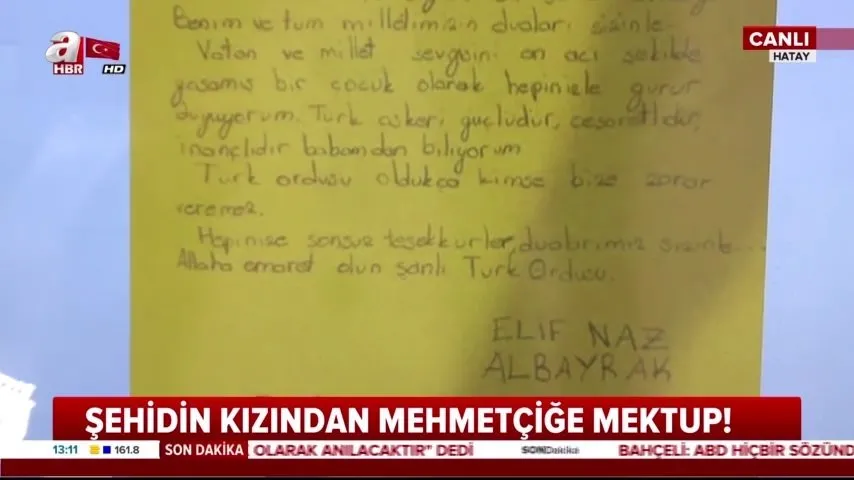 Benim ve tüm milletimizin duaları sizinle.
Vatan ve millet sevgisini en acı şekilde
yaşamış bir çocuk olarak hepinizle gurur
duyuyorum. Türk askeri güçlüdür, cesaretlidir,
inançlıdır babamdan biliyorum
Türk ordusu oldukça kimse bize zarar
veremez.
Hepinize sonsuz teşekkürler, dualarımız sizinle...
Allaha emanet olun şanlı Türk Ordusu.
ELIF NAZ
ALBAYRAK
a
HBR
HD
CANLI
HATAY
ŞEHİDİN KIZINDAN MEHMETÇİĞE MEKTUP!
13:11 161.8 SON DAKİKA OLARAK ANILACAKTIR” DEDİ SONDakika BAHÇELİ: ABD HİÇBİR SÖZÜND